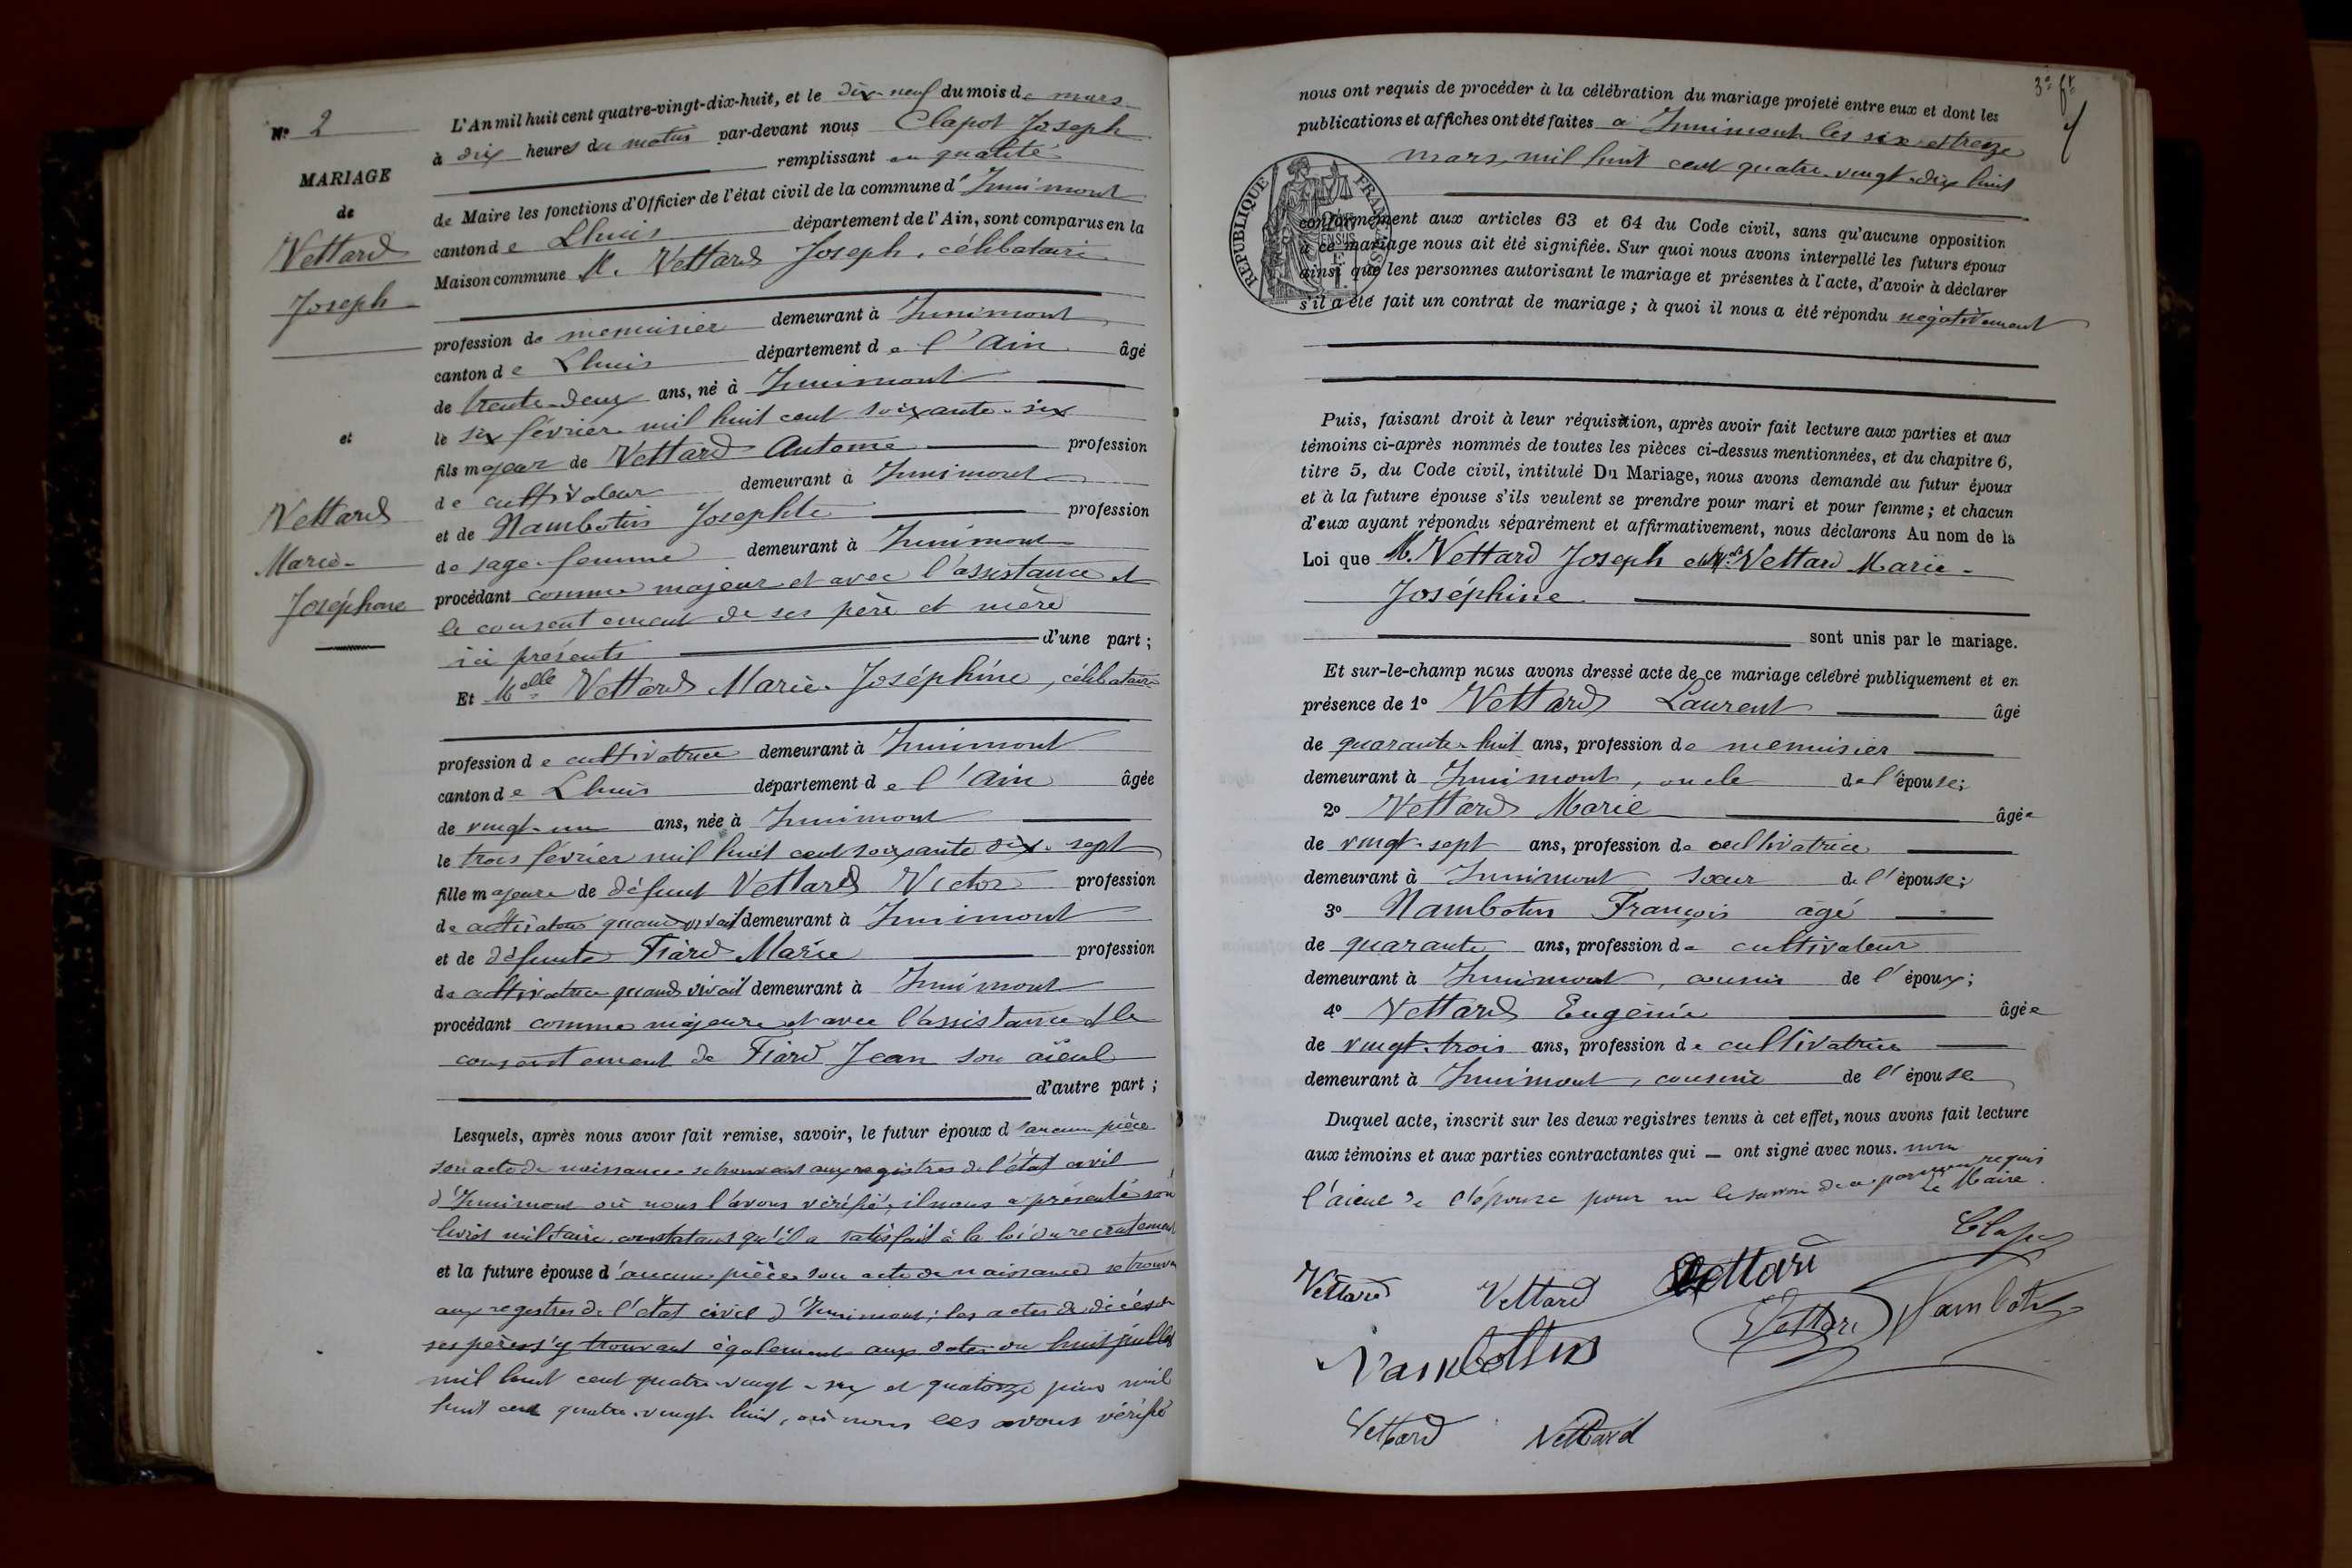 N° 2
MARIAGE
de
Vettard
Joseph
et
Vettard
Marie-
Joséphine
L'An mil huit cent quatre-vingt-dix-huit, et le dix-neuf du mois de mars
à dix heures du matin par-devant nous Clapot Joseph
remplissant en qualité
de Maire les fonctions d'Officier de l'état civil de la commune d'Innimont
canton de Lhuis département de l'Ain, sont comparus en la
Maison commune M. Vettard Joseph, célibataire
profession de menuisier demeurant à Innimont
canton de Lhuis département de l'Ain âgé
de trente-deux ans, né à Innimont
le six février mil huit cent soixante-six
fils majeur de Vettard Antoine profession
de cultivateur demeurant à Innimont
et de Nambotin Josephte profession
de sage-femme demeurant à Innimont
procédant comme majeur et avec l'assistance et
le consentement de ses père et mère
ici présents d'une part ;
Et Melle Vettard Marie-Joséphine, célibataire
profession de cultivatrice demeurant à Innimont
canton de Lhuis département de l'Ain âgée
de vingt-un ans, née à Innimont
le trois février mil huit cent soixante dix-sept
fille majeure de défunt Vettard Victor profession
de cultivateur quand vivait demeurant à Innimont
et de défunte Fiard Marie profession
de cultivatrice quand vivait demeurant à Innimont
procédant comme majeure et avec l'assistance et le
consentement de Fiard Jean son aïeul
d'autre part ;
Lesquels, après nous avoir fait remise, savoir, le futur époux d'aucune pièce
son acte de naissance se trouvant aux registres de l'état civil
d'Innimont où nous l'avons vérifié, il nous a présenté son
livret militaire constatant qu'il a satisfait à la loi du recrutement
et la future épouse d'aucune pièce son acte de naissance se trouve
aux registres de l'état civil d'Innimont ; les actes de décès de
ses père s'y trouvant également aux dates du huit juillet
mil huit cent quatre-vingt-six et quatorze juin mil
huit cent quatre-vingt huit, où nous les avons vérifié
3e ft
nous ont requis de procéder à la célébration du mariage projeté entre eux et dont les
publications et affiches ont été faites à Innimont les six et treize
mars mil huit cent quatre-vingt-dix huit
RÉPUBLIQUE FRANÇAISE
conformément aux articles 63 et 64 du Code civil, sans qu'aucune opposition
à ce mariage nous ait été signifiée. Sur quoi nous avons interpellé les futurs époux
ainsi que les personnes autorisant le mariage et présentes à l'acte, d'avoir à déclarer
s'il a été fait un contrat de mariage ; à quoi il nous a été répondu négativement
Puis, faisant droit à leur réquisition, après avoir fait lecture aux parties et aux
témoins ci-après nommés de toutes les pièces ci-dessus mentionnées, et du chapitre 6,
titre 5, du Code civil, intitulé Du Mariage, nous avons demandé au futur époux
et à la future épouse s'ils veulent se prendre pour mari et pour femme ; et chacun
d'eux ayant répondu séparément et affirmativement, nous déclarons Au nom de la
Loi que M. Vettard Joseph et Melle Vettard Marie-
Joséphine
sont unis par le mariage.
Et sur-le-champ nous avons dressé acte de ce mariage célébré publiquement et en
présence de 1° Vettard Laurent âgé
de quarante-huit ans, profession de menuisier
demeurant à Innimont, oncle de l'épouse ;
2° Vettard Marie âgée
de vingt-sept ans, profession de cultivatrice
demeurant à Innimont soeur de l'épouse ;
3° Nambotin François âgé
de quarante ans, profession de cultivateur
demeurant à Innimont, cousin de l'époux ;
4° Vettard Eugénie âgée
de vingt-trois ans, profession de cultivatrice
demeurant à Innimont, cousine de l'épouse
Duquel acte, inscrit sur les deux registres tenus à cet effet, nous avons fait lecture
aux témoins et aux parties contractantes qui — ont signé avec nous. non
l'aïeul de l'épouse pour ne le savoir de ce par nous requis
Le Maire.
Clapot
Vettard Vettard Vettard
Vettard Nambotin
Nambottin
Vettard Vettard